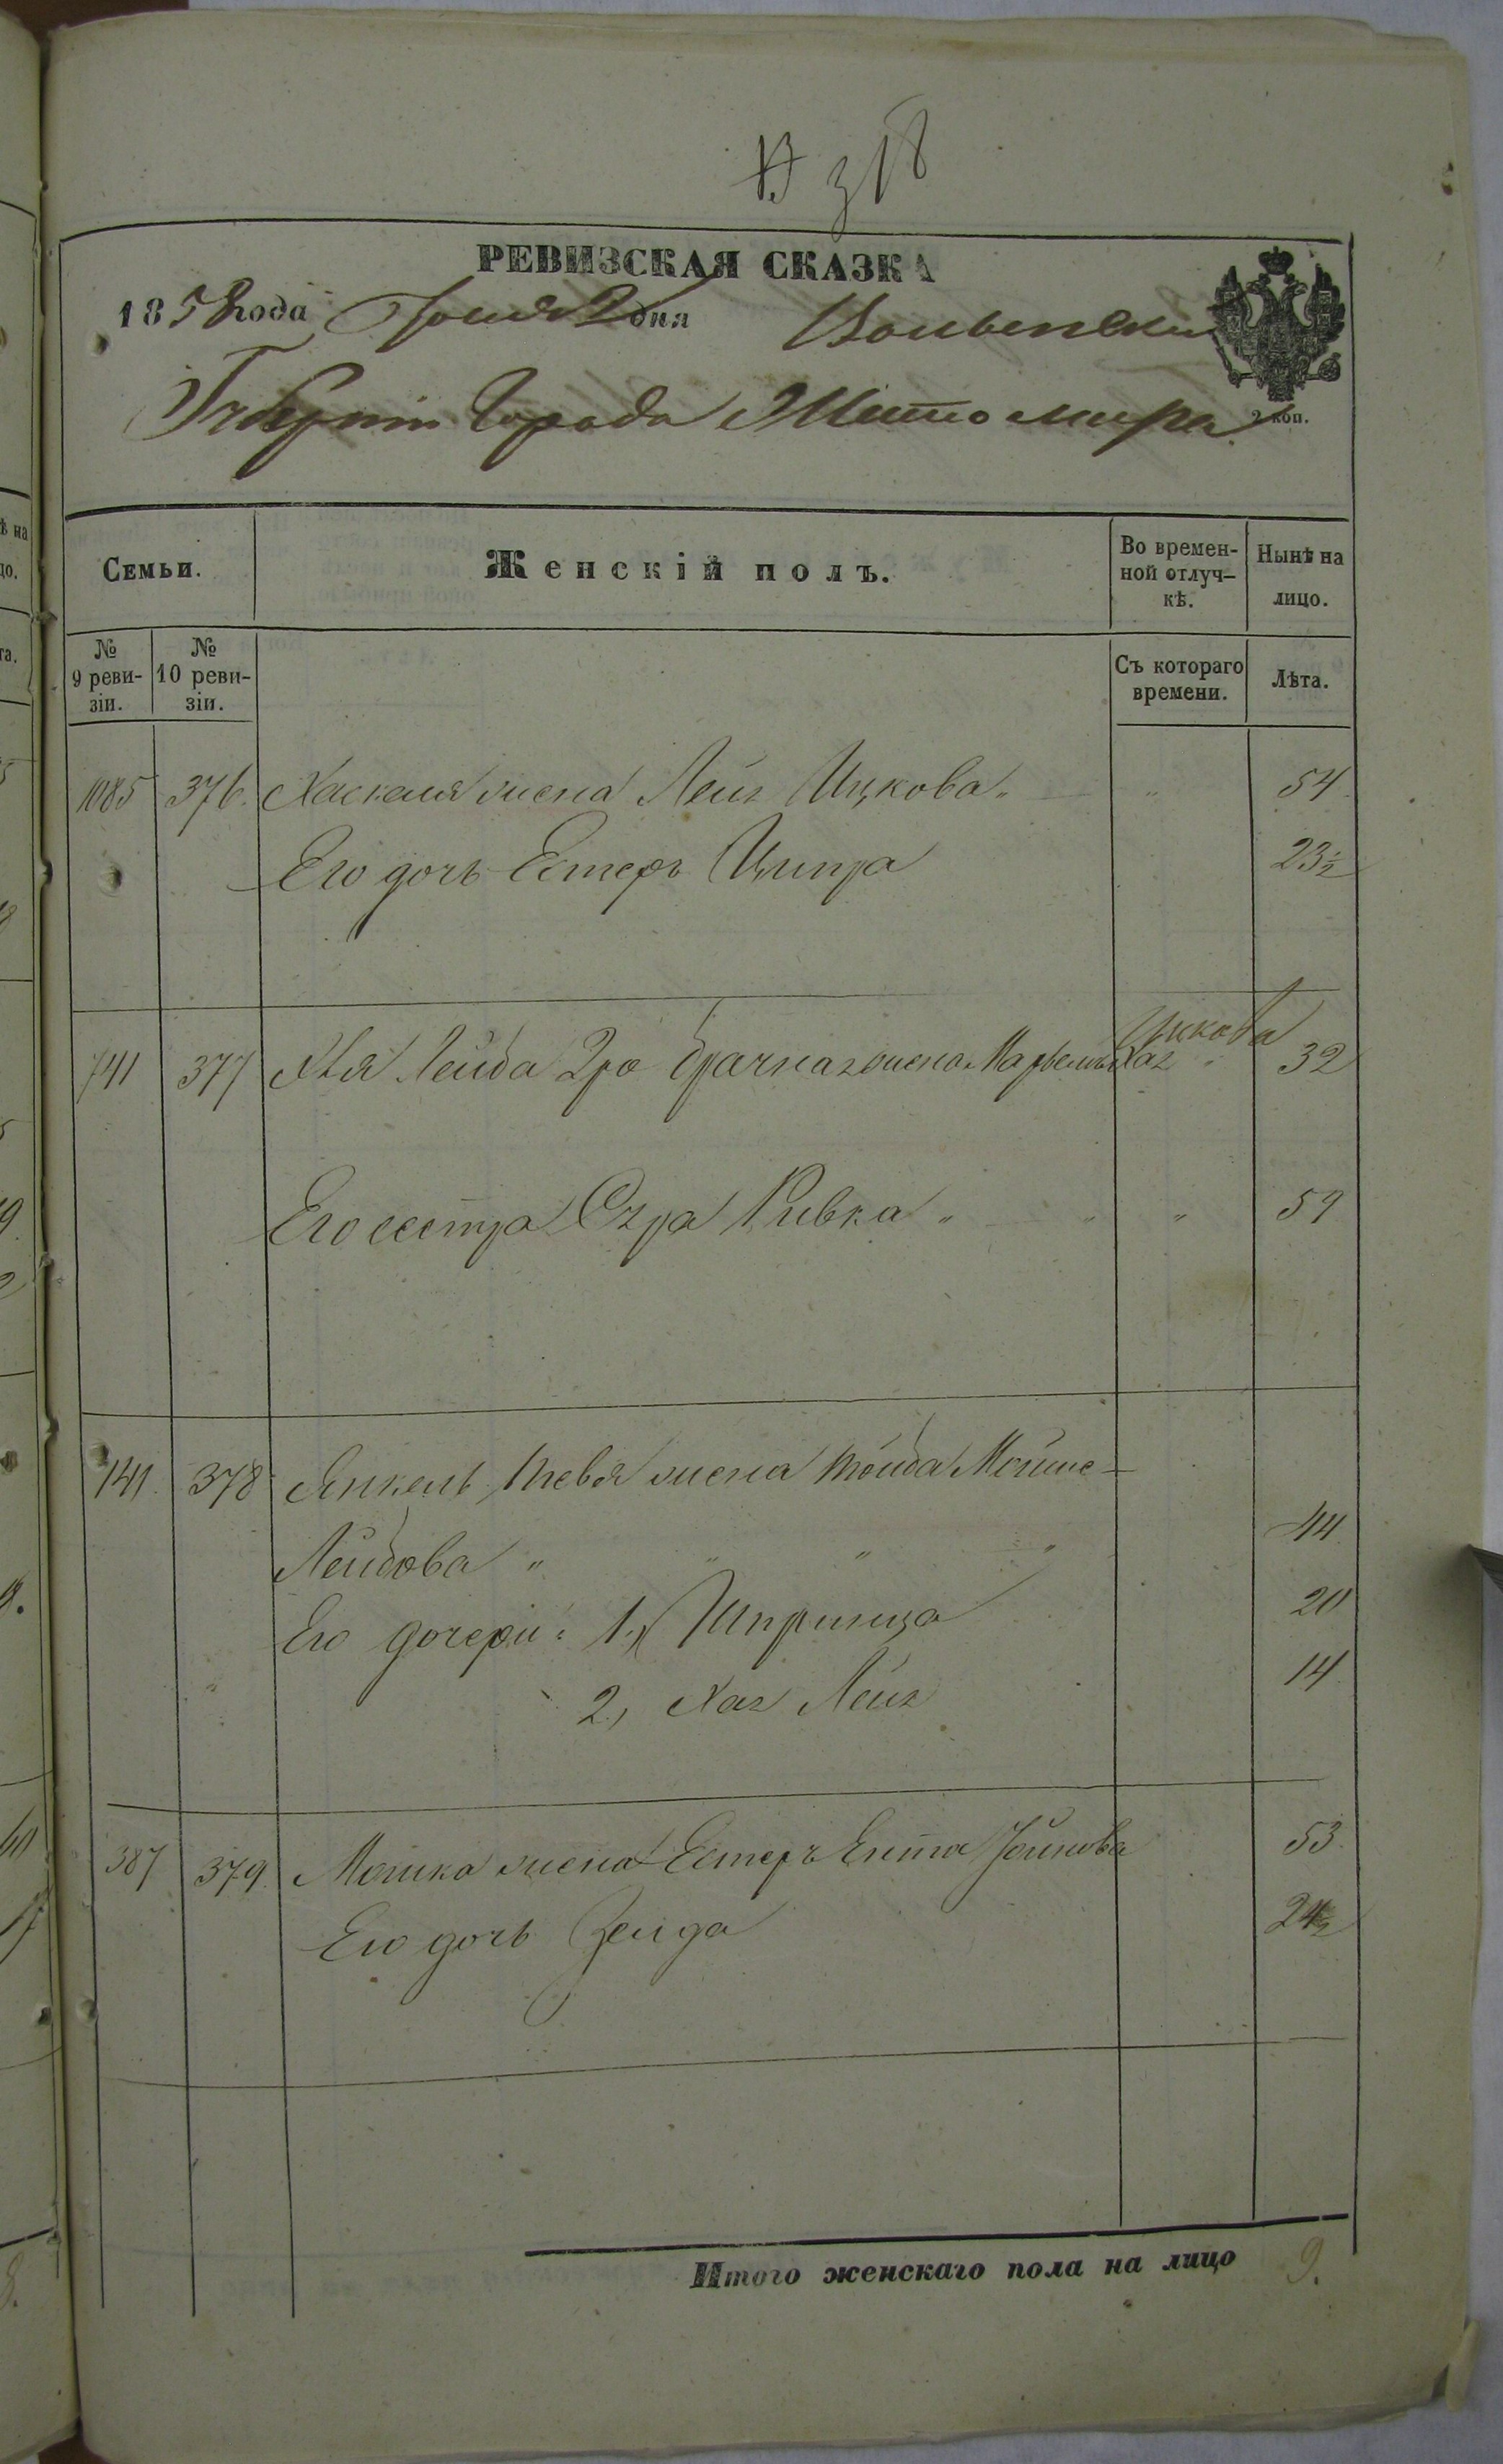 РЕВИЗСКАЯ СКАЗКА
1858 года Іюня 2 дня Волынской
Губерніи Города Житомира
2 коп.
Семьи.
Женскій полъ.
Во времен-
ной отлуч-
кѣ.
Нынѣ на
лицо.
№
9 реви-
зіи.
№
10 реви-
зіи.
Съ котораго
времени.
Лѣта.
1085 376. Хаскеля жена Лея Ицкова " " 54
Его дочь Естеръ Ципра 23½
Ицкова
741 377 Лейба 2го брачная жена Хая " 32
Его сестра Сура Ривка " " " 59
141. 378 Янкель Тевя жена Мойше-
Лейбова " " " " 44
Его дочери: 1, Шпринца 20
2, Хая Лея 14
387 379. Мошка жена Естеръ Ента 53
Его дочь Зелда 24½
Итого женскаго пола на лицо 9.